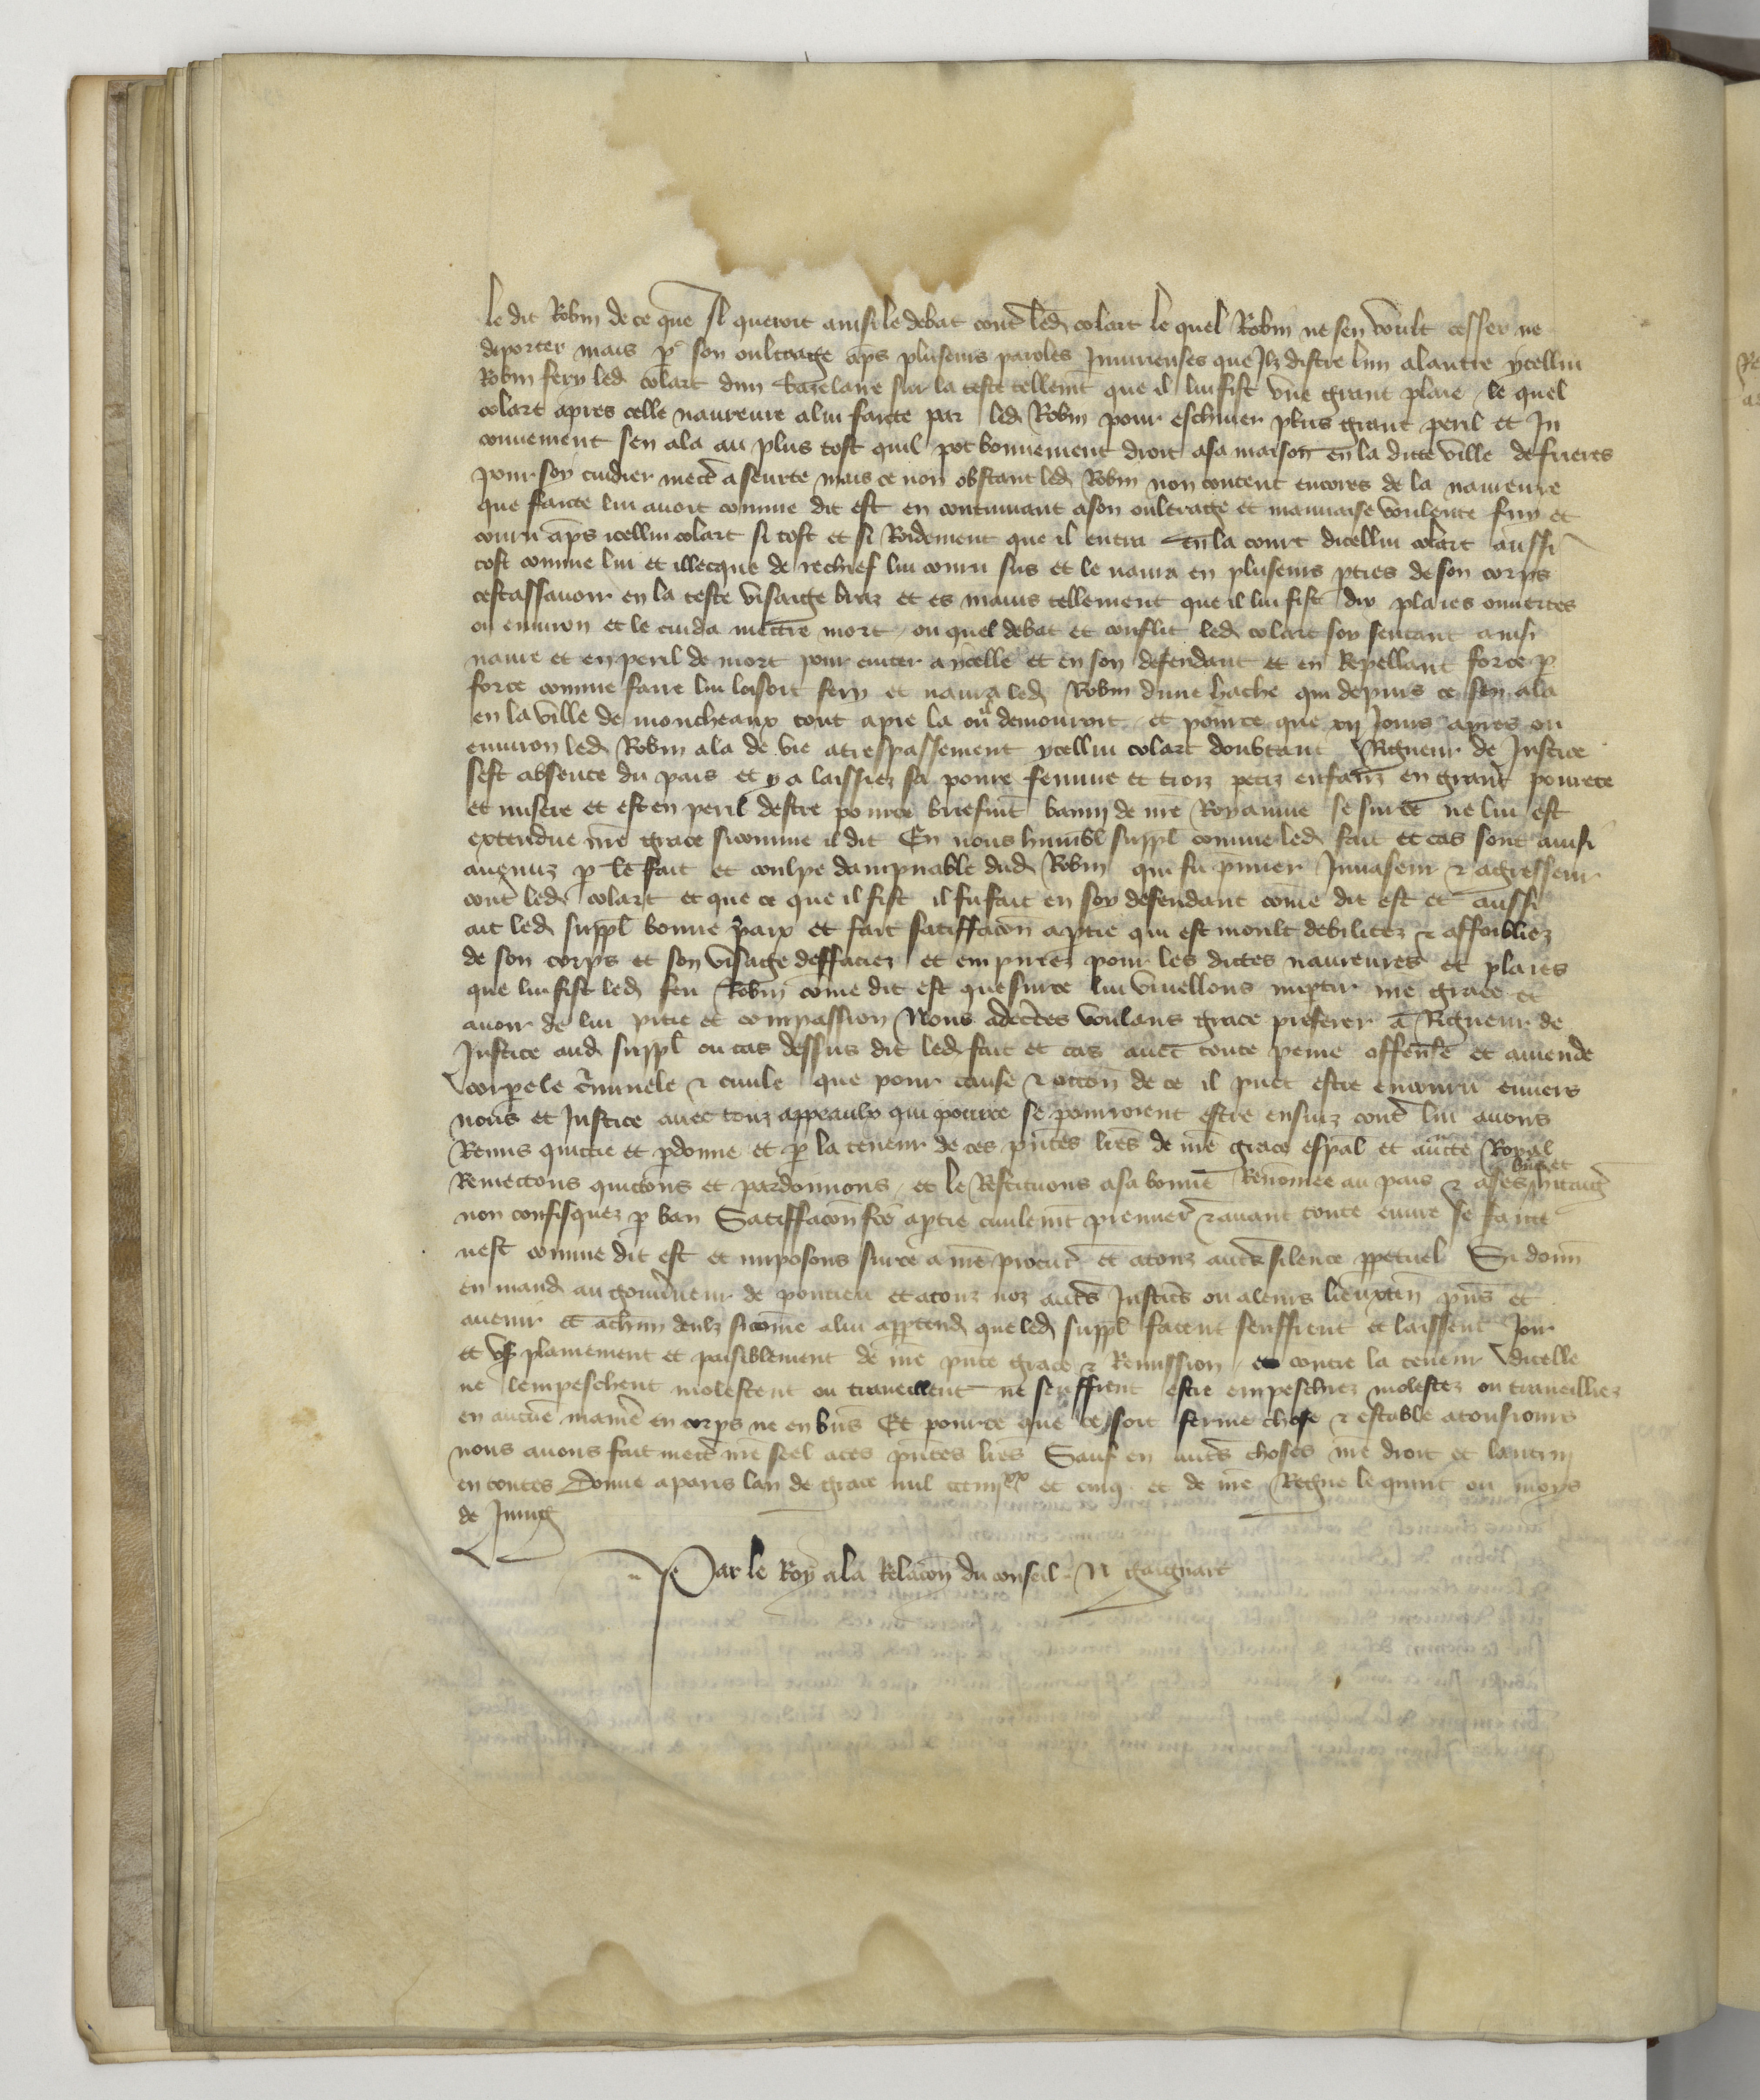 le dit Robin de ce que Il queroit ainsi le debat contr led colart le quel Robin ne sen voult cesser ne
deporter mais p son oultrage aps pluseurs paroles Iniurieuses que Ilz distre lun a lautre ycellui
Robin fery led colart dun bazelaire sur la teste tellemt que il lui fist une grant plaie le quel
colart apres celle navreure a lui faicte par led Robin pour eschiver plus grant peril et In
convenient sen ala au plus tost quil pot bonnement droit a sa maison en la dicte ville de frieres
pour soy cuidier mectr a seurte mais ce non obstant led Robin non content encores de la navreure
que faicte lui avoit comme dit est en continuant a son oultrage et mauvaise voulente suy et
couru aps icellui colart si tost et si Roidement que il entra en la court dicellui colart aussi
tost comme lui et illecques de rechief lui couru sus et le navra en pluseurs pties de son corps
cestassavoir en la teste visaige braz et es mains tellement que il lui fist dix plaies ouvertes
ou environ et le cuida mectre mort ou quel debat et conflit led colart soy sentant ainsi
navre et en peril de mort pour eviter a ycelle et en son defendant et en Repellant force p
force comme faire lui loisoit fery et navra led Robin dune hache qui depuis ce sen ala
en la ville de moncheaux tout a pie la ou demouroit et pource que xij Jours apres ou
environ led Robin ala de vie a trespassement ycellui colart doubtant Rigueur de Justice
sest absente du pais et y a laissiez sa povre femme et trois petiz enfanz en grant povrete
et misere et est en peril destre pource briefmt banny de nre Royaume se sur ce ne lui est
extendue nre grace sicomme il dit En nous humbl suppl comme led fait et cas sont ainsi
avenuz p le fait et coulpe dampnable dud Robin qui fu pmier Invaseur & agresseur
contr led colart et que ce que il fist il fu fait en soy defendant come dit est et aussi
ait led suppl bonne paix et fait satiffacon a ptie qui est moult debilitez & affoibliez
de son corps et son visage deffaciez et empirez pour les dictes navreures et plaies
que lui fist led feu Robin come dit est que sur ce lui vueillons imptir nre grace et
avoir de lui pitie et compassion Nous adecertes voulans grace preferer a Rigueur de
Justice aud suppl ou cas dessus dit led fait et cas avec toute peine offense et amende
corporele criminele & civile que pour cause & occon de ce il puet estre encouru envers
nous et Justice avec touz appeaulx qui pource se pourroient estre ensuiz contr lui avons
Remis quictie et pdonne et p la teneur de ces pntes lres de nre grace espal et aucte Royal
Remectons quictons et pardonnons et le Restituons a sa bonne Renomee au pais & a ses biens et
non confisquez p ban Satiffacon fce a ptie civilemt premier & avant toute euvre se faicte
nest comme dit est et imposons sur ce a nre procur et a touz autrs silence ppetuel Si donn
en mand au gouverneur de pontieu et a touz noz autrs Justics ou a leurs lieuxten pns et
avenir et a chun deulz sicome a lui apptend que led suppl facent seuffrent et laissent Joir
et us plainement et paisiblement de nre pnte grace & Remission et contre la teneur dicelle
ne lempeschent molestent ou traveillent ne seuffrent estre empeschiez molestez ou traveilliez
en aucune maniere en corps ne en biens Et pource que ce soit ferme chose & estable a tousiours
nous avons fait mectr nre seel a ces pntes lres Sauf en autrs choses nre droit et lautruy
en toutes Donne a paris lan de grace mil ccciiijxx et cinq et de nre Regne le quint ou moys
de Juing
Par le Roy a la Relacon du conseil N gaignart